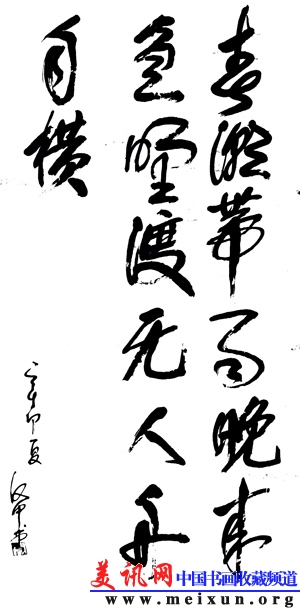 春潮帶雨晚来
急野渡无人舟
自横
辛卯夏
美讯网
中国书画收藏频道
www.meixun.org